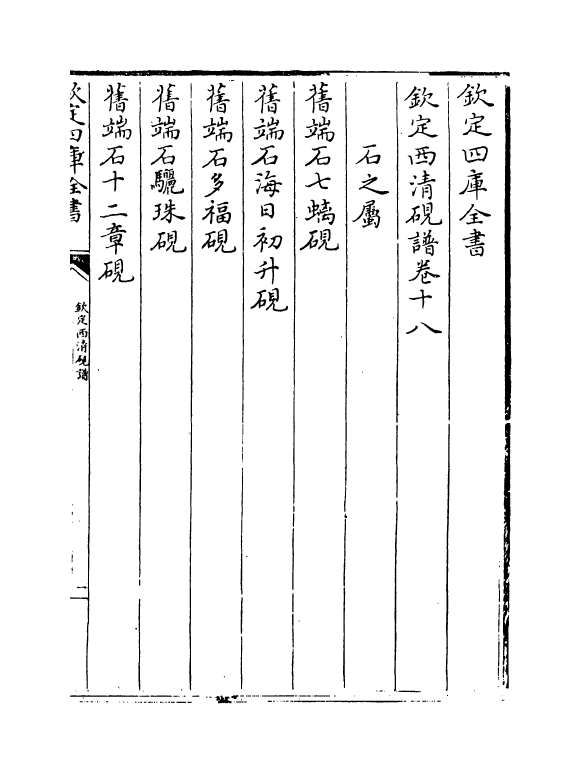 欽定四庫全書
欽定西清硯譜卷十八
石之屬
舊端石七螭硯
舊端石海日初升硯
舊端石多福硯
舊端石驪珠硯
舊端石十二章硯
欽定四庫全書
欽定西清硯譜
二